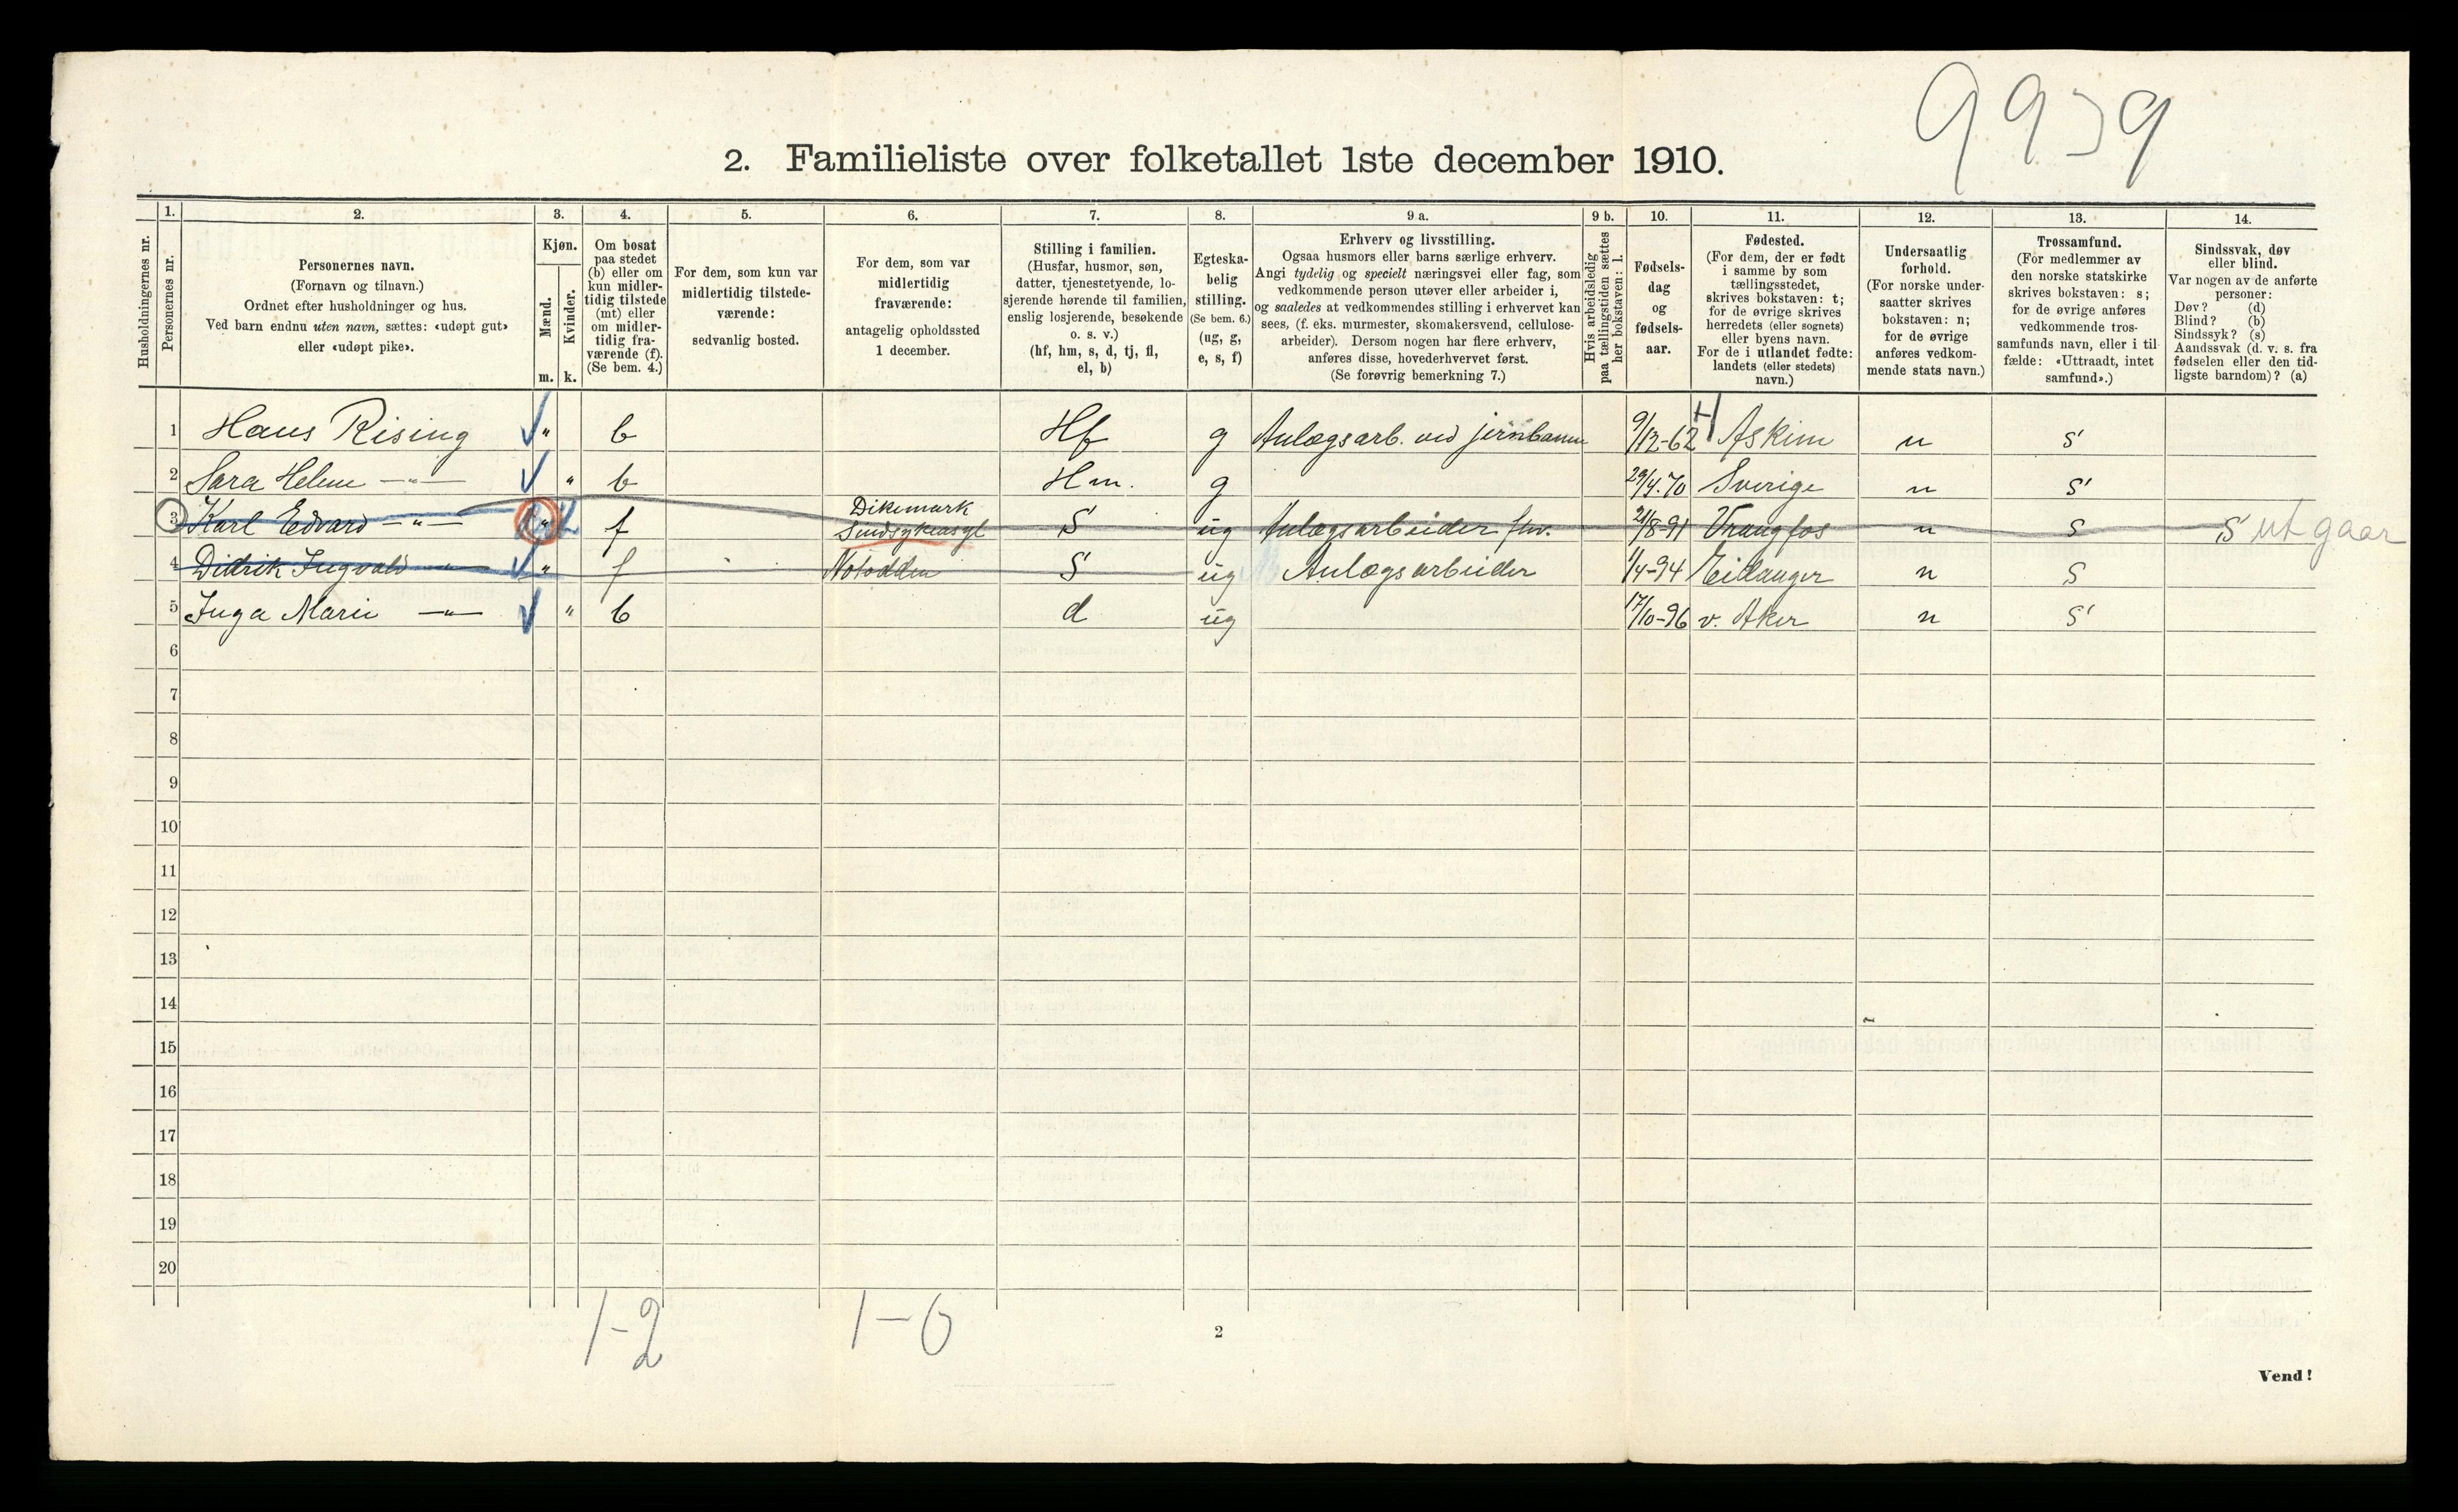 9939
2. Familieliste over folketallet 1ste december 1910.
Husholdningernes nr.
1. Personernes nr.
2. Personernes navn.
(Fornavn og tilnavn.)
Ordnet efter husholdninger og hus.
Ved barn endnu uten navn, sættes: «udøpt gut»
eller «udøpt pike».
3. Kjøn.
Mænd. m.
Kvinder. k.
4. Om bosat
paa stedet
(b) eller om
kun midler-
tidig tilstede
(mt) eller
om midler-
tidig fra-
værende (f).
(Se bem. 4.)
5. For dem, som kun var
midlertidig tilstede-
værende:
sedvanlig bosted.
6. For dem, som var
midlertidig
fraværende:
antagelig opholdssted
1 december.
7. Stilling i familien.
(Husfar, husmor, søn,
datter, tjenestetyende, lo-
sjerende hørende til familien,
enslig losjerende, besøkende
o. s. v.)
(hf, hm, s, d, tj, fl,
el, b)
8. Egteska-
belig
stilling.
(Se bem. 6.)
(ug, g,
e, s, f)
9 a. Erhverv og livsstilling.
Ogsaa husmors eller barns særlige erhverv.
Angi tydelig og specielt næringsvei eller fag, som
vedkommende person utøver eller arbeider i,
og saaledes at vedkommendes stilling i erhvervet kan
sees, (f. eks. murmester, skomakersvend, cellulose-
arbeider). Dersom nogen har flere erhverv,
anføres disse, hovederhvervet først.
(Se forøvrig bemerkning 7.)
9 b. Hvis arbeidsledig
paa tællingstiden sættes
her bokstaven: l.
10. Fødsels-
dag
og
fødsels-
aar.
11. Fødested.
(For dem, der er født
i samme by som
tællingsstedet,
skrives bokstaven: t;
for de øvrige skrives
herredets (eller sognets)
eller byens navn.
For de i utlandet fødte:
landets (eller stedets)
navn.)
12. Undersaatlig
forhold.
(For norske under-
saatter skrives
bokstaven: n;
for de øvrige
anføres vedkom-
mende stats navn.)
13. Trossamfund.
(For medlemmer av
den norske statskirke
skrives bokstaven: s;
for de øvrige anføres
vedkommende tros-
samfunds navn, eller i til-
fælde: «Uttraadt, intet
samfund».)
14. Sindssvak, døv
eller blind.
Var nogen av de anførte
personer:
Døv? (d)
Blind? (b)
Sindssyk? (s)
Aandssvak (d. v. s. fra
fødselen eller den tid-
ligste barndom)? (a)
1 Hans Rising " b Hf g Anlægsarb. ved jernbanen 9/12-62 Askim n s
2 Sara Helene —"— " b Hm. g 29/4.70 Sverige n s
3 Karl Edvard —"— " f Dikemark Sindsykeasyl S ug Anlægsarbeider 21/8-91 Vrangfos n s S utgaar
4 Didrik Ingvald —"— " f Notodden S ug Anlægsarbeider 1/4-94 Eidanger n s
5 Inga Marie —"— " b d ug 17/10-96 v. Aker n s
6
7
8
9
10
11
12
13
14
15
16
17
18
19
20
1-2 1-0
2
Vend!